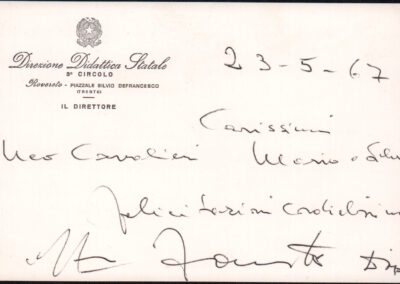 Direzione Didattica Statale
3º CIRCOLO
Rovereto - PIAZZALE SILVIO DEFRANCESCO
(TRENTO)
IL DIRETTORE
23-5-67
Carissimi
Neo Cavalieri Mario e
felicitazioni cordialissime